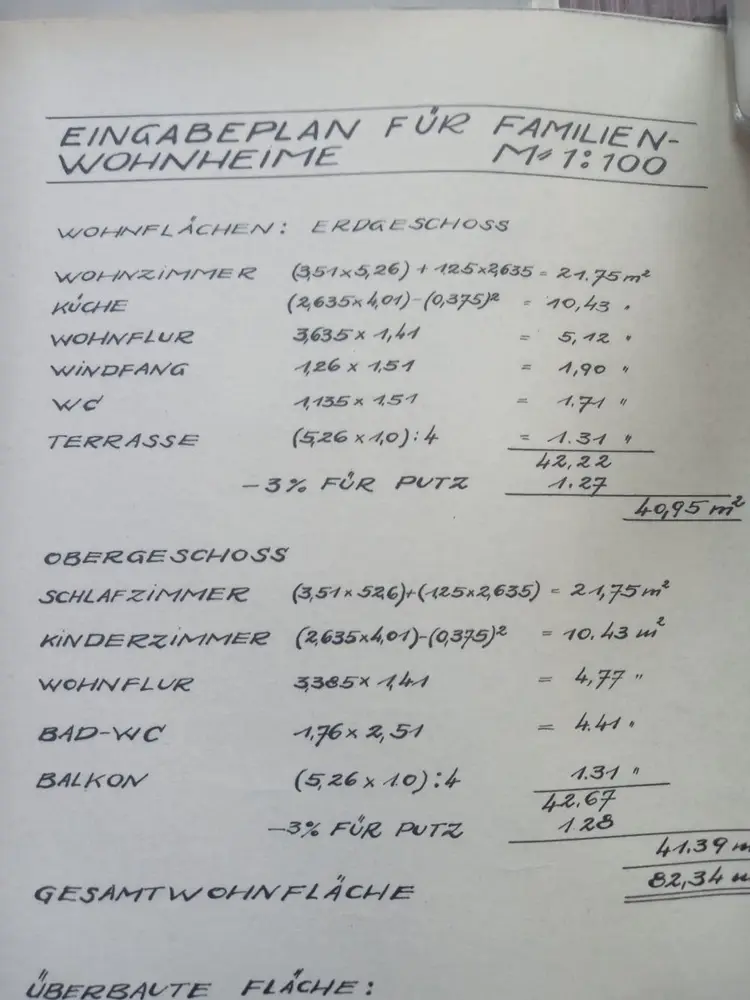 EINGABEPLAN FÜR FAMILIEN-
WOHNHEIME M= 1:100
WOHNFLÄCHEN: ERDGESCHOSS
WOHNZIMMER (3,51x5,26) + 1,25x2,635 = 21.75 m²
KÜCHE (2,635x4,01)-(0,375)² = 10,43 "
WOHNFLUR 3,635 x 1,41 = 5,12 "
WINDFANG 1,26 x 1,51 = 1,90 "
WC 1,135 x 1,51 = 1.71 "
TERRASSE (5,26 x 1,0):4 = 1.31 "
42,22
-3% FÜR PUTZ 1.27
40,95 m²
OBERGESCHOSS
SCHLAFZIMMER (3,51x5,26)+(1,25x2,635) = 21,75 m²
KINDERZIMMER (2,635x4,01)-(0,375)² = 10.43 m²
WOHNFLUR 3,385 x 1,41 = 4,77 "
BAD-WC 1,76 x 2,51 = 4.41 "
BALKON (5,26 x 1.0):4 1.31 "
42.67
-3% FÜR PUTZ 1 28
41.39 m
GESAMTWOHNFLÄCHE 82,34 m
ÜBERBAUTE FLÄCHE: